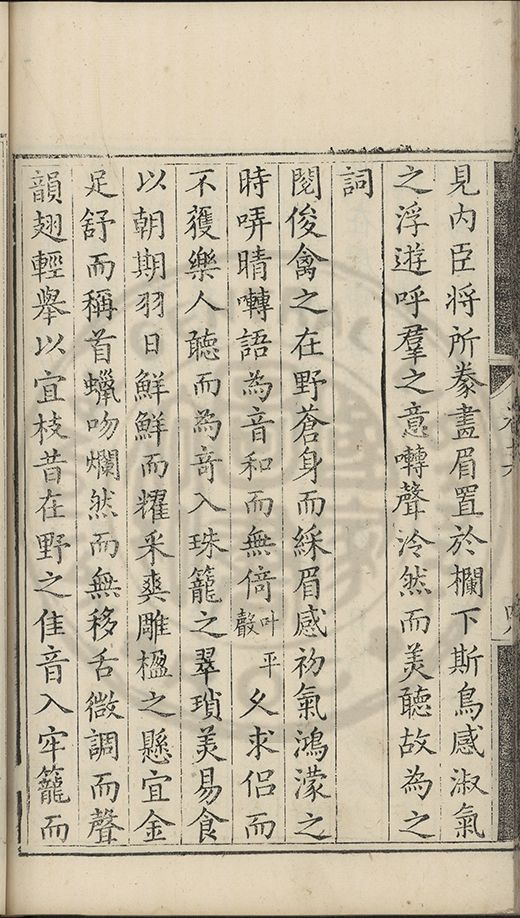 見内臣将所豢畫眉置於欄下斯鳥感淑氣
之浮遊呼羣之意囀聲泠然而美聽故為之
詞
閱俊禽之在野蒼身而綵眉感初氣鴻濛之
時哢晴囀語為音和而無倚叶平聲攵求侣而
不獲樂人聽而為竒入珠籠之翠瑣美易食
以朝期羽日鮮鮮而耀釆爽雕楹之懸宜金
足舒而稱首蠟吻爛然而無移舌微調而聲
韻翅輕舉以宜枝昔在野之隹音入牢籠而